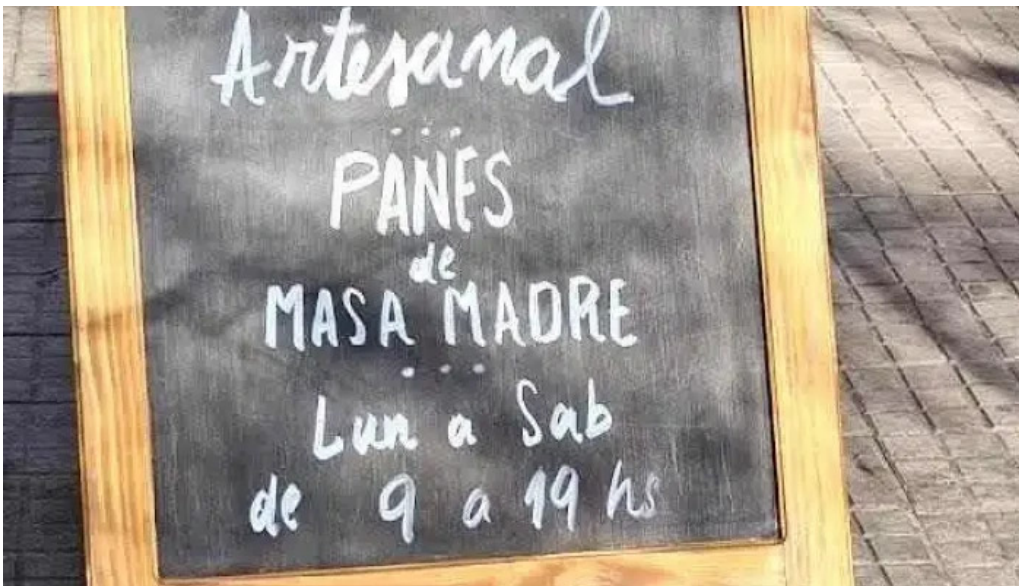 Artesanal
...
PANES
de
MASA MADRE
...
Lun a Sab
de 9 a 19 hs